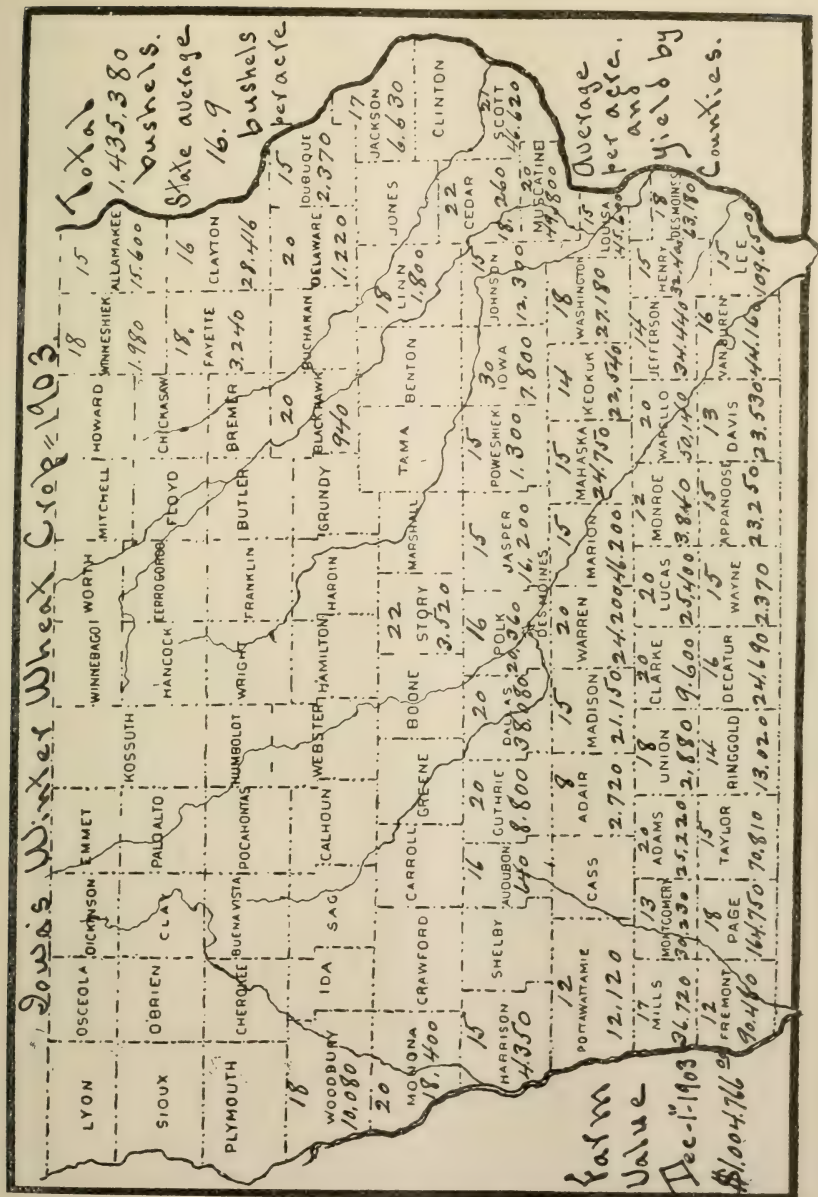 Iowa's Winter Wheat Crop=1903
Total
1,435,380
bushels.
State average
16.9
bushels
per acre
LYON
OSCEOLA
DICKINSON
EMMET
WINNEBAGO
WORTH
MITCHELL
HOWARD
18
WINNESHIEK
1.980
15
ALLAMAKEE
15.600
SIOUX
O'BRIEN
CLAY
PALO ALTO
KOSSUTH
HANCOCK
CERRO GORDO
FLOYD
CHICKASAW
18.
FAYETTE
3.240
16
CLAYTON
28.416
PLYMOUTH
CHEROKEE
BUENA VISTA
POCAHONTAS
HUMBOLDT
WRIGHT
FRANKLIN
BUTLER
BREMER
18
WOODBURY
10,080
IDA
SAC
CALHOUN
WEBSTER
HAMILTON
HARDIN
GRUNDY
20
BLACK HAWK
940
BUCHANAN
20
DELAWARE
1.220
15
DUBUQUE
2.370
20
MONONA
18,400
CRAWFORD
CARROLL
GREENE
BOONE
22
STORY
3.520
MARSHALL
TAMA
BENTON
18
LINN
1.800
JONES
17
JACKSON
6.630
CLINTON
15
HARRISON
4.350
SHELBY
16
AUDUBON
640
20
GUTHRIE
8.800
20
DALLAS
38.080
16
POLK
20,360
DES MOINES
15
JASPER
16,200
15
POWESHIEK
1.300
30
IOWA
7.800
15
JOHNSON
12.300
22
CEDAR
18,260
27
SCOTT
46.620
20
MUSCATINE
49,800
12
POTTAWATTAMIE
12,120
CASS
8
ADAIR
2.720
15
MADISON
21.150
20
WARREN
24.200
15
MARION
46.200
15
MAHASKA
24.750
14
KEOKUK
22,540
18
WASHINGTON
27.180
15
LOUISA
45.600
Average
per acre.
and
yield by
Counties.
17
MILLS
36.720
13
MONTGOMERY
30,230
20
ADAMS
25,220
18
UNION
2,880
20
CLARKE
9.600
20
LUCAS
25,400
12
MONROE
3.840
20
WAPELLO
50,140
14
JEFFERSON
34.440
15
HENRY
32.400
18
DES MOINES
63,180
12
FREMONT
90.480
18
PAGE
164.750
15
TAYLOR
70,810
14
RINGGOLD
13.020
16
DECATUR
24,690
15
WAYNE
2.370
15
APPANOOSE
23,250
13
DAVIS
23.530
16
VAN BUREN
44.160
15
LEE
109.650
Farm
Value
Dec-1-1903
$1,004.766 00